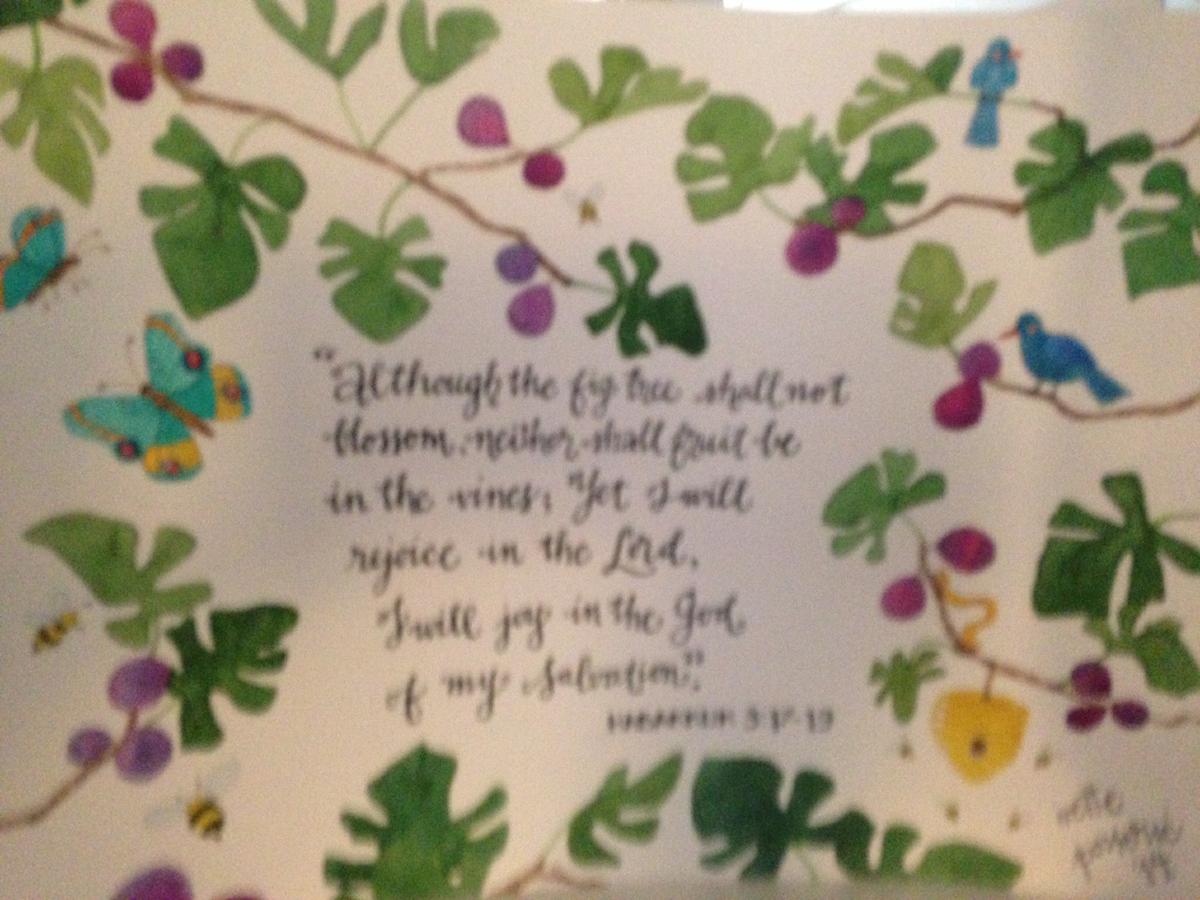 "Although the fig tree shall not
blossom, neither shall fruit be
in the vines; Yet I will
rejoice in the Lord,
I will joy in the God
of my Salvation."
HABAKKUK 3:17-19